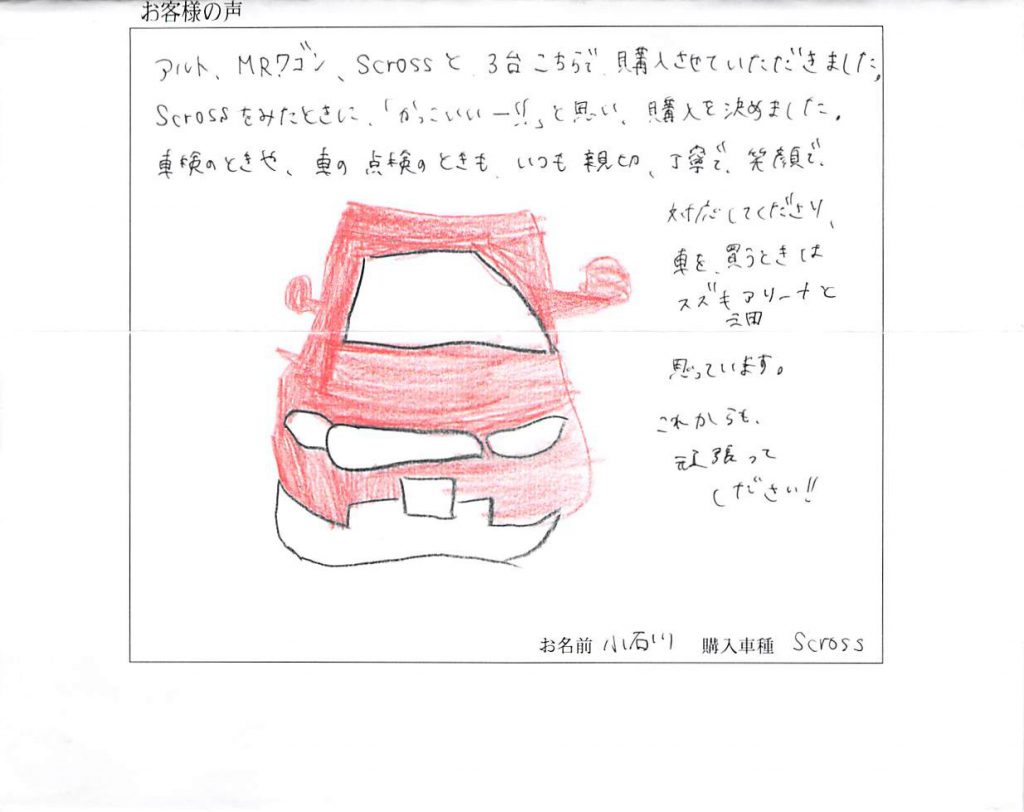 お客様の声
アルト、MRワゴン、Scrossと、3台こちらで、購入させていただきました。
Scrossをみたときに、「かっこいいー!!」と思い、購入を決めました。
車検のときや、車の点検のときも、いつも親切、丁寧で、笑顔で、
対応してくださり、
車を、買うときは
スズキアリーナと
三田
思っています。
これからも、
頑張って
ください!!
お名前 小石川 購入車種 Scross